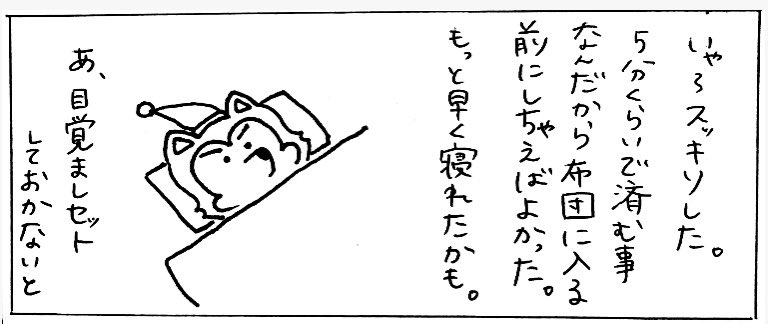 いやぁスッキリした。
5分くらいで済む事
なんだから布団に入る
前にしちゃえばよかった。
もっと早く寝れたかも。
あ、目覚ましセット
しておかないと